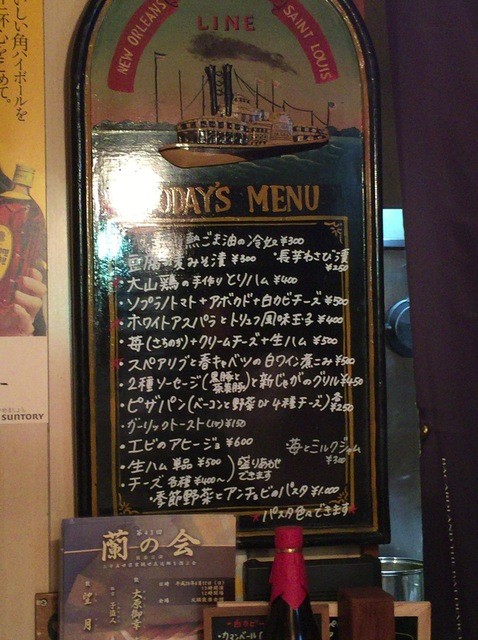 LINE
NEW ORLEANS
SAINT LOUIS
TODAY'S MENU
熱ごま油の冷奴 ¥300
豆腐の麦みそ漬 ¥300 ・長芋わさび漬 ¥250
・大山鶏の手作りとりハム ¥400
・ソプラノトマト+アボカド+白カビチーズ ¥500
・ホワイトアスパラとトリュフ風味玉子 ¥400
・苺(さちのか)+クリームチーズ+生ハム ¥500
・スペアリブと春キャベツの白ワイン煮こみ ¥500
・2種ソーセージ(黒豚と茶美豚)と新じゃがのグリル ¥450
・ピザパン(ベーコンと野菜 or 4種チーズ)各¥250
・ガーリックトースト ¥150
・エビのアヒージョ ¥600
・苺とミルクジャム ¥300
・生ハム 単品 ¥500
・チーズ各種 ¥400〜
盛りあわせできます
・季節野菜とアンチョビのパスタ ¥1,000
パスタ色々できます
いしい角ハイボールを
心をこめて。
SUNTORY
第43回
蘭の会
望月
大原御幸